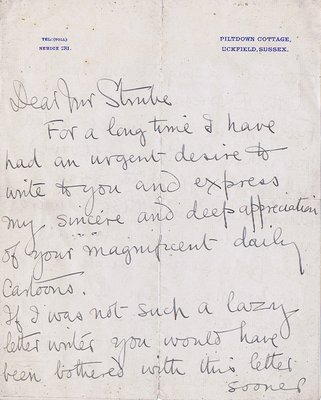 TEL: (TOLL)
NEWICK 281.
PILTDOWN COTTAGE,
UCKFIELD, SUSSEX.
Dear Mr Strube
For a long time I have
had an urgent desire to
write to you and express
my sincere and deep appreciation
of your magnificent daily
Cartoons.
If I was not such a lazy
letter writer you would have
been bothered with this letter
sooner